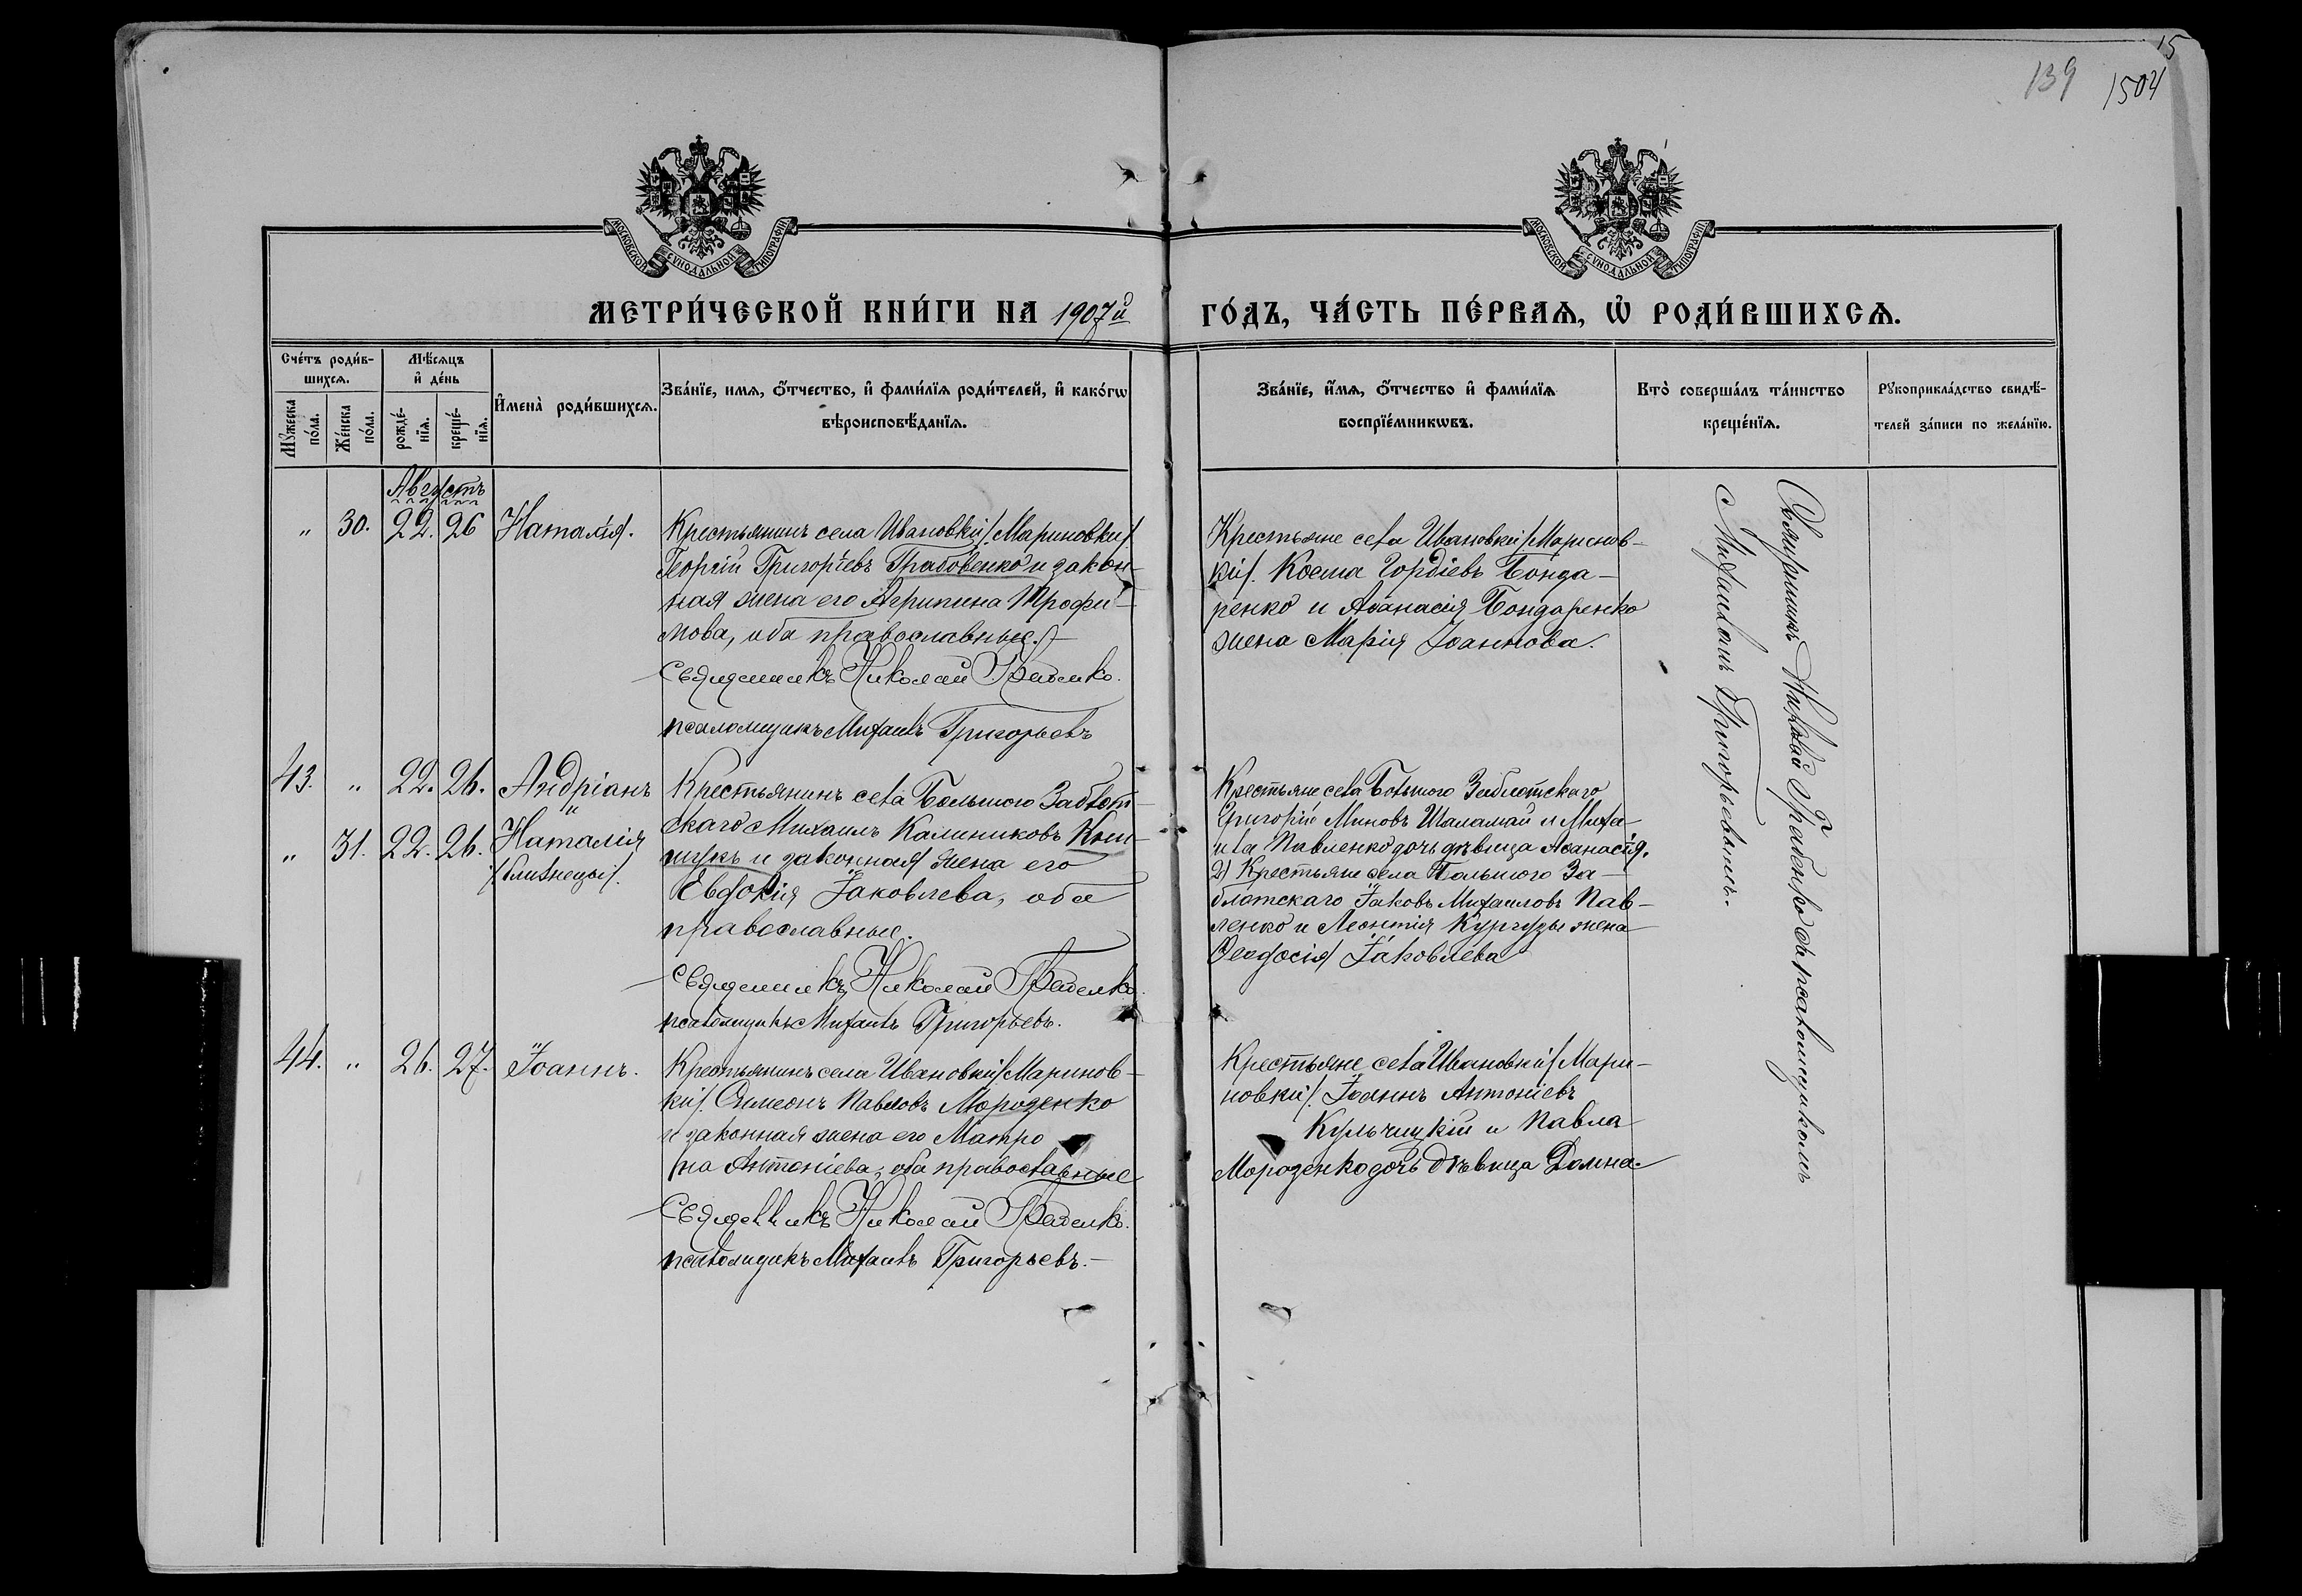 15
139 1504
МОСКОВСКОЙ СѴНОДАЛЬНОЙ ТИПОГРАФІИ
МОСКОВСКОЙ СѴНОДАЛЬНОЙ ТИПОГРАФІИ
МЕТРИ́ЧЕСКОЙ КНИ́ГИ НА 1907й
ГО́ДЪ, ЧА́СТЬ ПЕ́РВАѦ, Ѽ РОДИ́ВШИХСѦ.
Сче́тъ роди́в-
шихсѧ.
Мꙋ́жеска
по́ла.
Же́нска
по́ла.
Мѣ́сѧцъ
и҆ де́нь
рожде́-
нїѧ.
креще́-
нїѧ.
И҆мена̀ роди́вшихсѧ.
Зва́нїе, имѧ, ѻ҆́тчество, и҆ фами́лїѧ роди́телей, и҆ како́гѡ
вѣроисповѣ́данїѧ.
Зва́нїе, и҆́мѧ, ѻ҆́тчество и҆ фами́лїѧ
воспрїе́мникѡвъ.
Кто̀ соверша́лъ та́инство
креще́нїѧ.
Рꙋкоприкла́дство свидѣ́-
телей за́писи по жела́нїю.
Августъ
" 30. 22. 26 Наталія.
Крестьянинъ села Ивановки /Мариновки/
Георгій Григоріевъ Грабовенко и закон-
ная жена его Агрипина Трофи-
мова, оба православные.
Священникъ Николай Грабенко.
псаломщикъ Михаилъ Григорьевъ
Крестьяне села Ивановки /Маринов-
ки/. Косма Гордіевъ Бонда-
ренко и Аѳанасія Бондаренко
жена Марія Іоаннова.
Священникъ Николай Грабенко съ псаломщикомъ
Михаиломъ Григорьевымъ.
43. " 22. 26. Андріанъ
и
" 31. 22. 26. Наталія
/близнецы/.
Крестьянинъ села Большого Заблот-
скаго Михаилъ Калиниковъ
и законная жена его
Евдокія Іаковлева, оба
православные.
Священникъ Николай Грабенко.
псаломщикъ Михаилъ Григорьевъ.
Крестьяне села Большого Заблотскаго
Григорій Миновъ Шаламай и Миха-
ила Павленко дочь дѣвица Аѳанасія.
2) Крестьяне села Большого За-
блотскаго Іаковъ Михаиловъ Пав-
ленко и Леонтія Кургузы жена
Ѳеодосія Іаковлева
44. " 26. 27. Іоаннъ.
Крестьянинъ села Ивановки /Маринов-
ки/. Симеонъ Павловъ Мороженко
и законная жена его Матро
на Антоніева, оба православные
Священникъ Николай Грабенко.
псаломщикъ Михаилъ Григорьевъ.-
Крестьяне села Ивановки /Мари-
новки/. Іоаннъ Антоніевъ
Кульчицкій и Павла
Мороженко дочь дѣвица Домна.